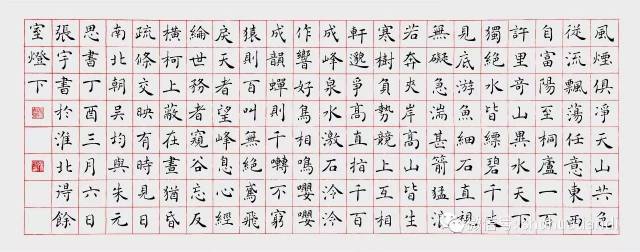 風煙俱淨天山共色
從流飄蕩任意東西
自富陽至桐廬一百
許里奇山異水天下
獨絕水皆縹碧千丈
見底游魚細石直視
無礙急湍甚箭猛浪
若奔夾岸高山皆生
寒樹負勢競上互相
軒邈爭高直指千百
成峰泉水激石泠泠
作響好鳥相鳴嚶嚶
成韻蟬則千囀不窮
猿則百叫無絕鳶飛
戾天者望峰息心經
綸世務者窺谷忘反
橫柯上蔽在晝猶昏
疏條交映有時見日
南北朝吳均與朱元
思書丁酉三月六日
張宇書於淮北淂餘
室燈下